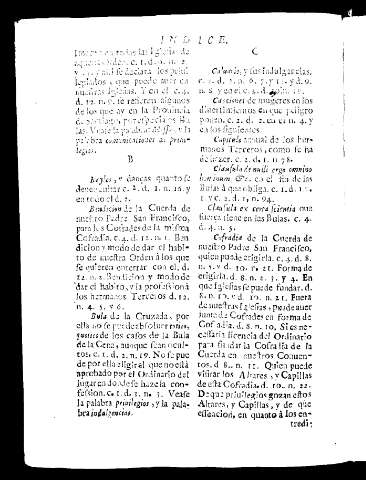 INDICE.
aquella Orden. c. 1. d. 9. n. 2.
y 11. y assi se declara los privilegios
legiados, que puede aver en
nuestras Iglesias. Y en el c. 4.
d. 12. n. 9. se refieren algunos
de los que ay en la Provincia
de Santiago, por especiales Bulas.
las. Vease la palabra Missa, y la
palabra comunicacion de privilegios.
legios.
B
Bayles, y danças quanto se
deven evitar
en todo el d. 2.
Bendicion de la Cuerda de
nuestro Padre San Francisco,
para los Cofrades de la misma
Cofradia. c. 4. d. 12. n. 4. Bendicion
dicion y modo de dar el habito
to de nuestra Orden á los que
se quieren enterrar con el. d.
12. n. 2. Bendicion y modo de
dar el habito, y la professió á
los hermanos Terceros d. 12.
n. 4. 5. y 6.
Bula de la Cruzada, por
ella no se puede absolver
de los casos de la Bula
de la Cena, aunque sean ocultos.
tos. c. 1. d. 2. n. 19. No se puede
de por ella eligir el que no está
aprobado por el Ordinario del
lugar en dóde se haze la confession.
fession. c. 1. d. 3. n. 3. Vease
la palabra privilegios, y la palabra
bra indulgencias.
C
Calvario, y sus indulgencias.
Canciones de mugeres en los
divertimientos en que peligro
ponen. c. 2. d. 2. en el n. 4. y
en los siguientes.
Capitulo anual de los hermanos
manos Terceros, como se ha
de hazer. c. 2. d. 1. n. 78.
Clausula de nisi ergo omnino
en el fin de las
Bulas á que obliga. c. 1. d. 12.
y c. 2. d. 1. n. 94.
Clausula ex certa scientia que
fuerça tiene en las Bulas. c. 4.
d. 4. n. 5.
Cofradia de la Cuerda de
nuestro Padre San Francisco,
quien puede erigirla. c. 4. d. 8.
n. 5. y d. 10. r. 21. Forma de
erigirla. d. 8. n. 2. 3. y 4. En
que Iglesias se puede fundar. d.
8. n. 10. y d. 10. n. 21. Fuera
de nuestras Iglesias, puede aver
junta de Cofrades en forma de
Cofadia. d. 8. n. 10. Si es necessaria
cessaria licencia del Ordinario
para fundar la Cofradia de la
Cuerda en nuestros Conventos.
tos. d. 8. n. 12. Quien puede
visitar los Altares, y Capillas
de esta Cofradia. d. 10. n. 22.
De que privilegios gozan estos
Altares, y Capillas, y de que
essencion, en quanto á los entredi-
tredi: